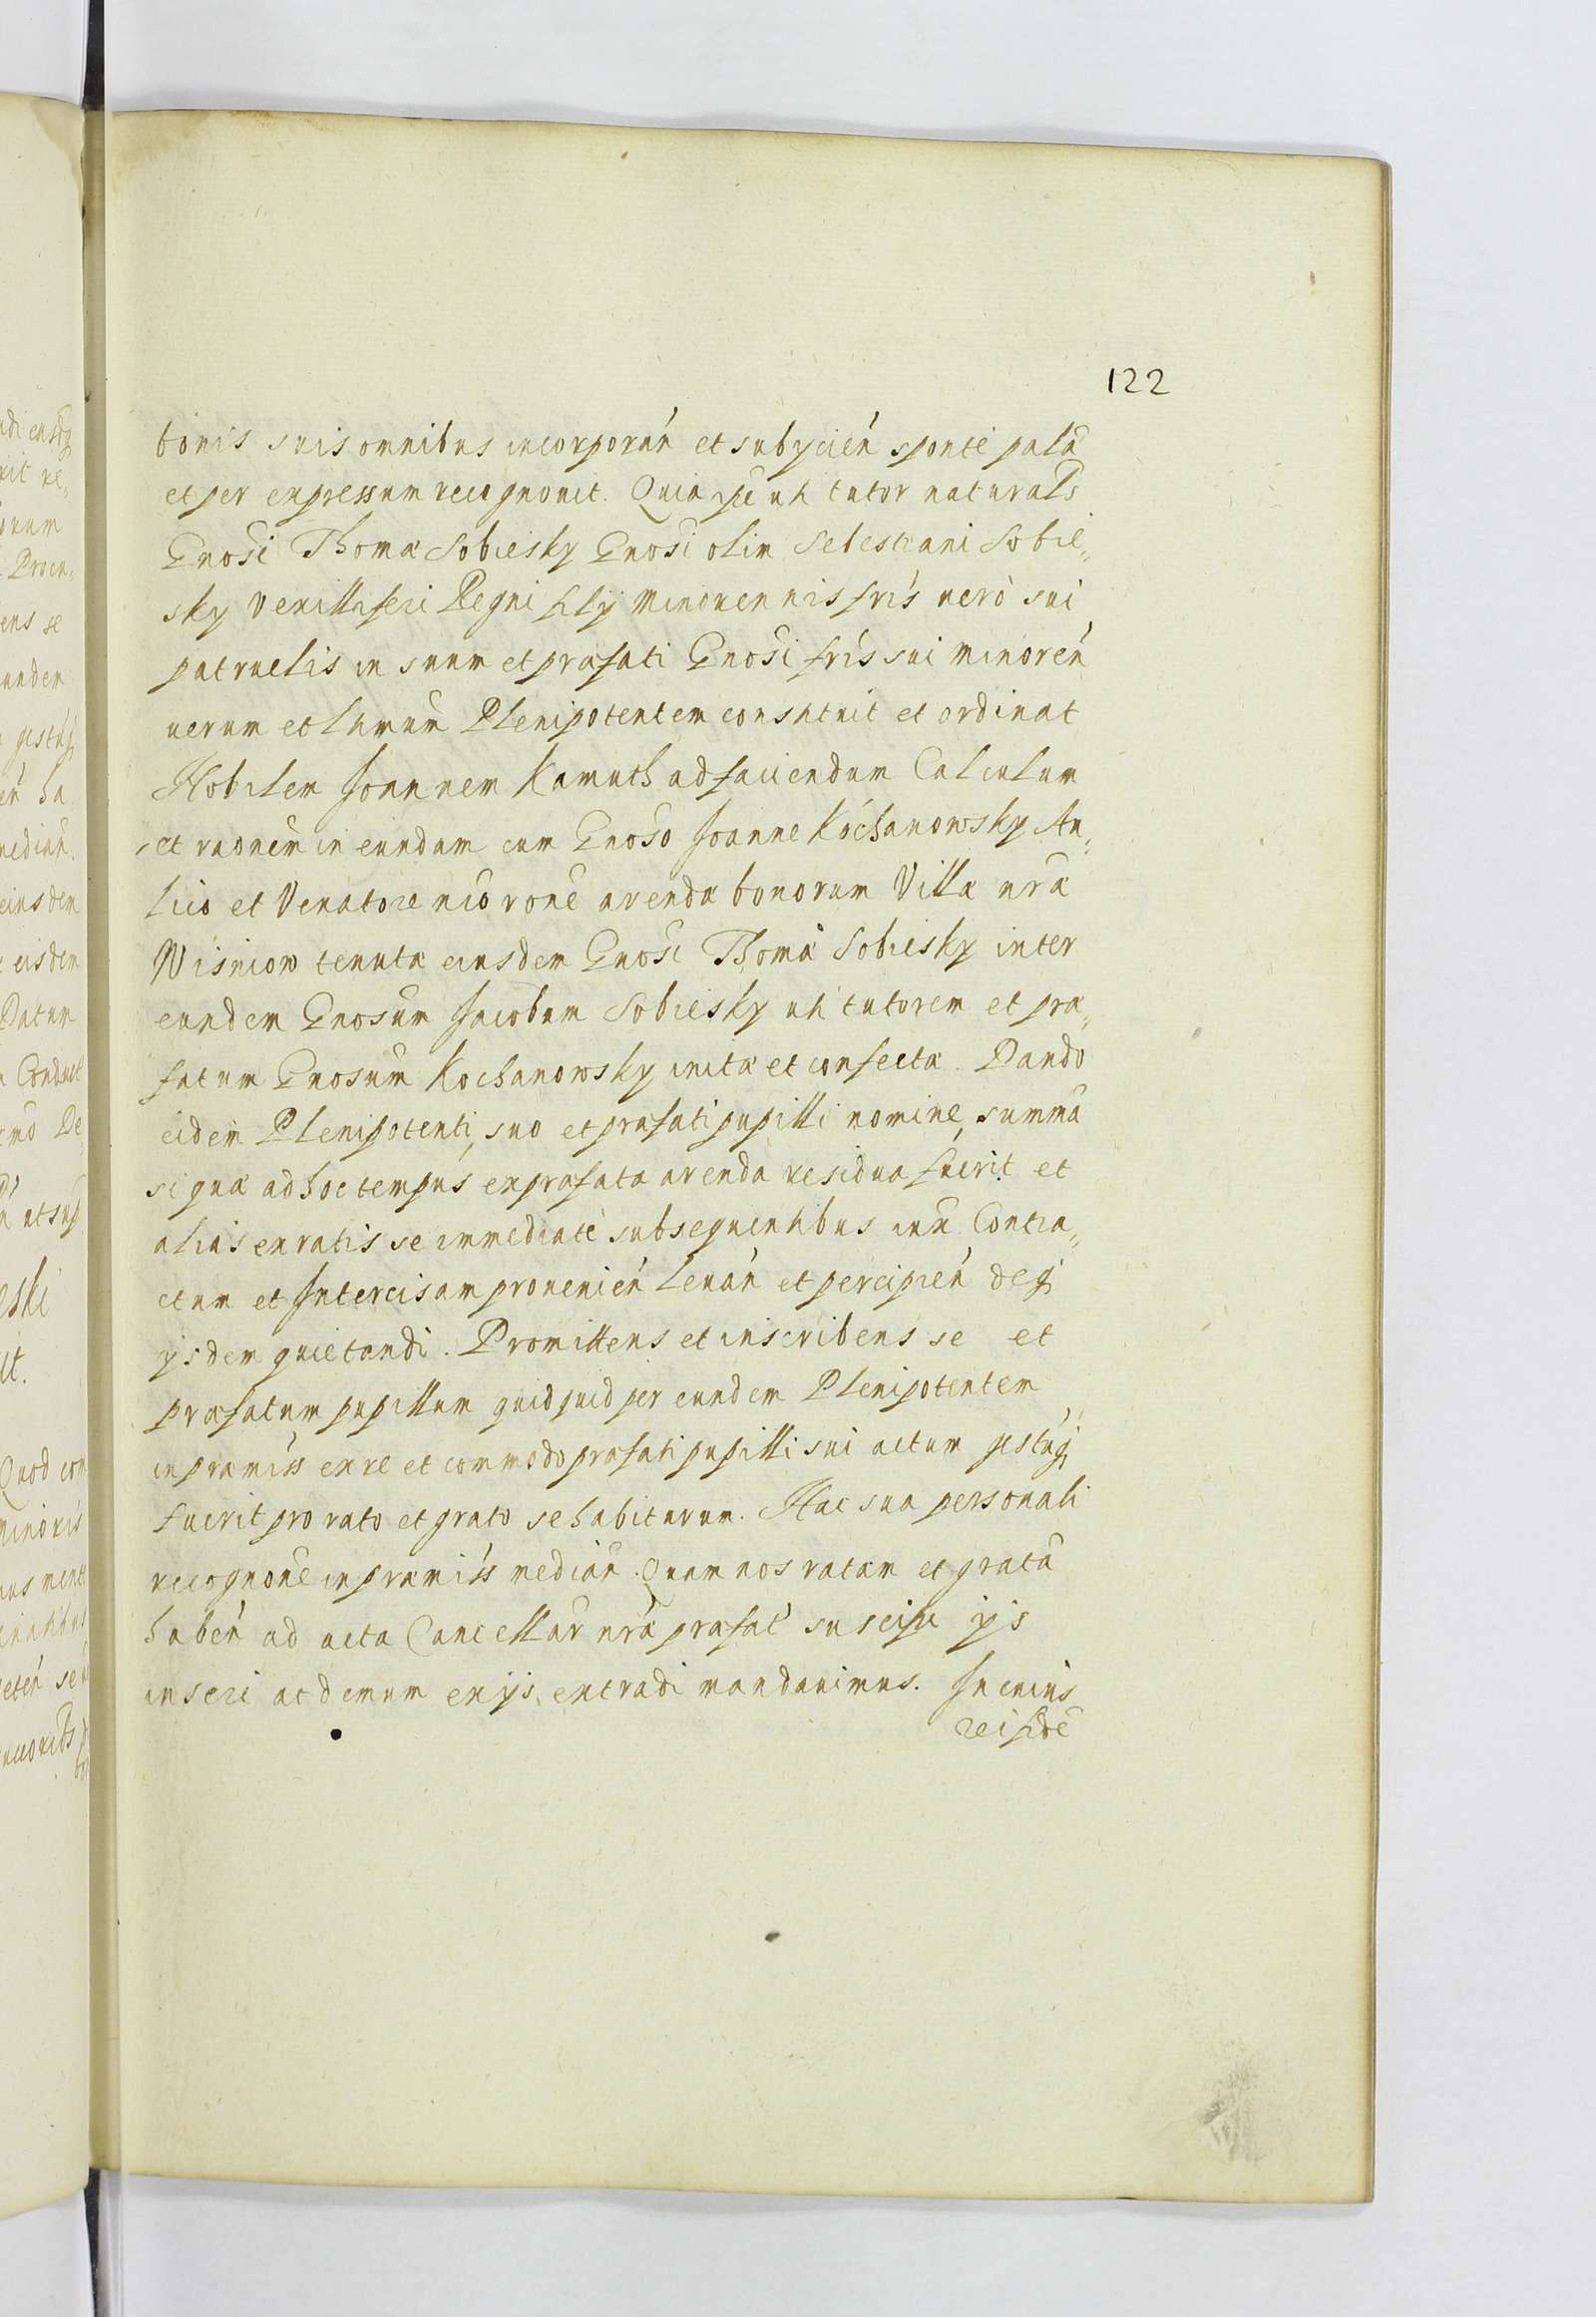 122
bonis suis omnibus incorporań et subycień sponte palā
et per expressum recognouit. Quia ipse uti tutor naturalis
Gnosi Thomæ Sobiesky Gnosi olim Sebestiani Sobie„
sky Vexilliferi Regni filij minorennis friś verò sui
patruelis in suum et præfati Gnosi friś sui minoreń
uerum et ltimum Plenipotentem constituit et ordinat
Nobilem Joannem Kamuth ad faciendum Calculum
et raonem ineundam cum Gnoso Joanne Kochanowsky Au„
lico et Venatore nro rone arendæ bonorum Villæ nræ
Wisniow tenutæ eiusdem Gnosi Thomæ Sobiesky inter
eundem Gnosum Jacobum Sobiesky uti tutorem et præ„
fatum Gnosum Kochanowsky initæ et confectæ. Dando
eidem Plenipotenti, suo et præfati pupilli nomine, summā
si quæ ad hoc tempus ex præfata arenda residua fuerit et
alias ex ratis se immediatè subsequentibus iuxta Contra„
ctum et Intercisam prouenień leuań et percipień deq
ijsdem quietandi. Promittens et inscribens se et
præfatum pupillum quidquid per eundem Plenipotentem
in præmiss ex re et commodo præfati pupilli sui actum gestuq
fuerit pro rato et grato se habiturum. Hac sua personali
recognone in præmiss median. Quam nos ratam et gratā
habeń ad acta Cancellar nræ præfat suscipi ijs
inseri ac demum ex ijs extradi mandauimus. In cuius
rei fidē